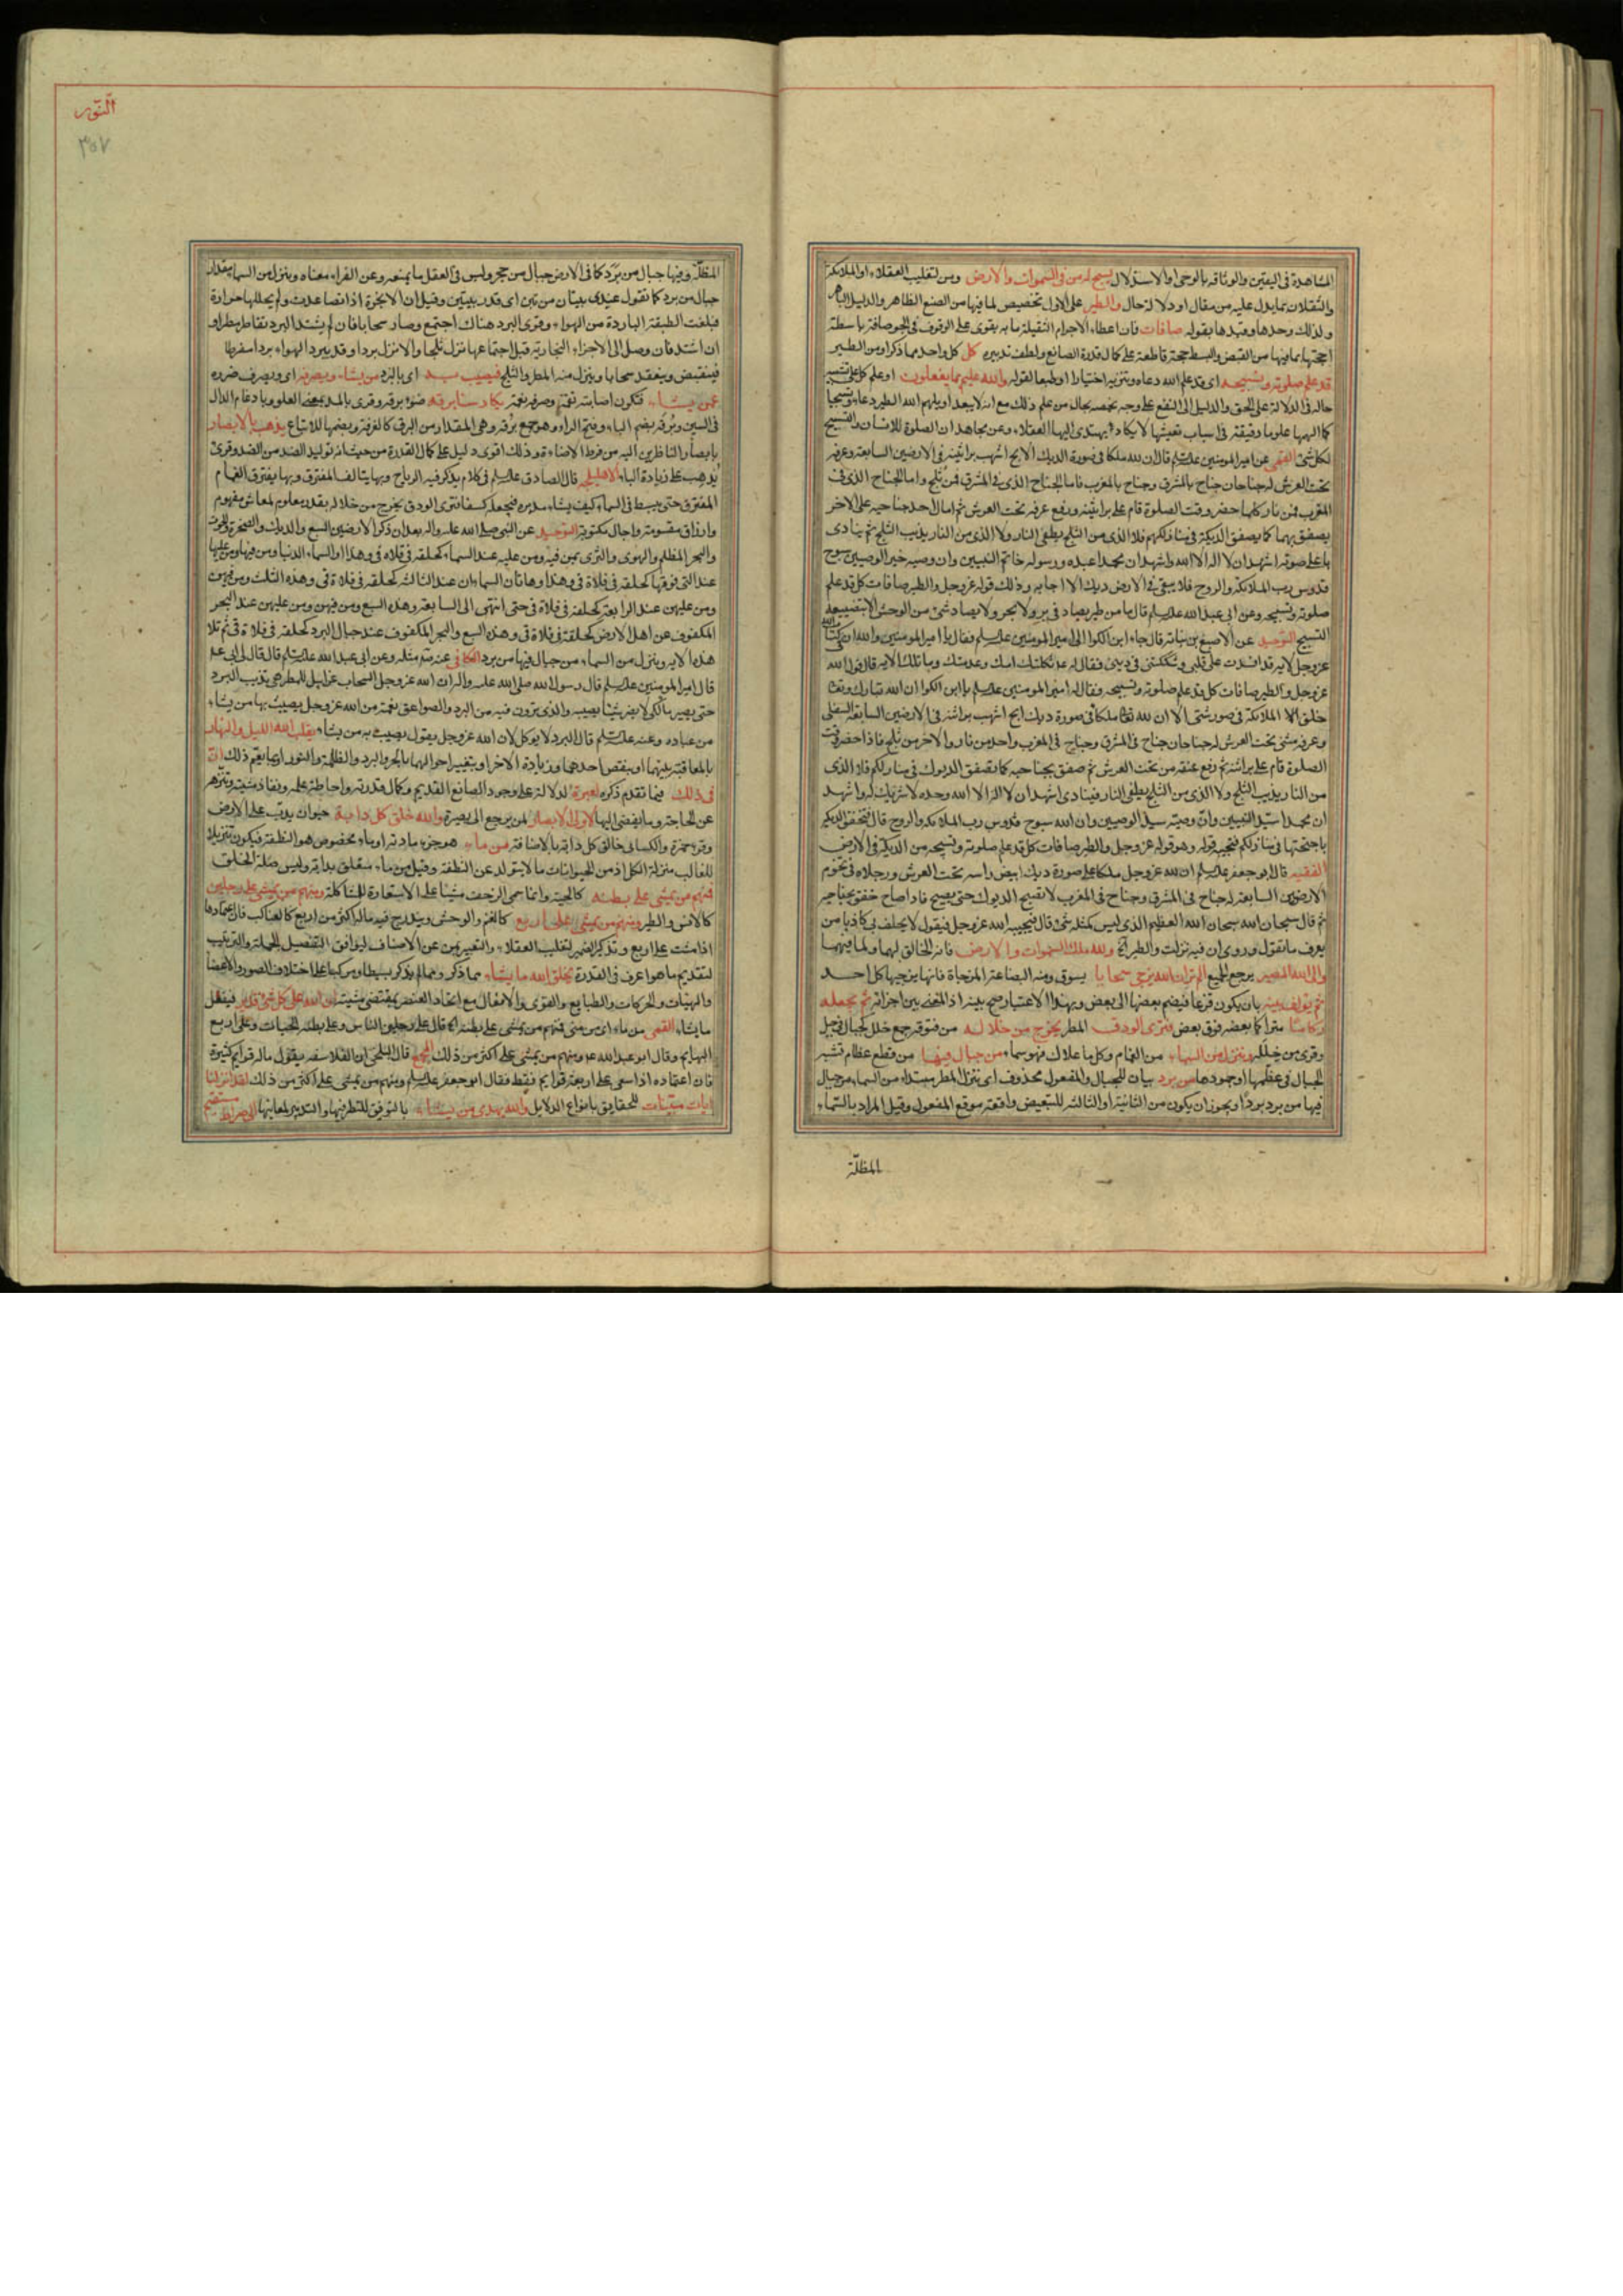 المشاهدة فى اليقين والوثاقة بالوحى او الاستدلال يسبح له من فى السموات والارض ومن لتغليب العقلاء او الملائكة
والثقلان بما يدل عليه من مقال او دلالة حال والطير على الاول تخصيص لما فيها من الصنع الظاهر والدليل الباهر
ولذلك وحدها وقيدها بقوله صافات فان اعطاء الاجرام الثقيلة ما به يقوى على الوقوف فى الجو صافة باسطة
اجنحتها بما فيها من القبض والبسط حجة قاطعة على كمال قدرة الصانع ولطف تدبيره كل كل واحد مما ذكر او من الطير
قد علم صلوته وتسبيحه اى قد علم الله دعاءه وتنزيهه اختيارا او طبعا لقوله والله عليم بما يفعلون او علم كل على تشبيه
حاله فى الدلالة على الحق والميل الى النفع على وجه يخصه بحال من علم ذلك مع انه لا يبعد ان يلهم الله الطير دعاء وتسبيحا
كما الهمها علوما دقيقة فى اسباب تعيشها لا يكاد يهتدى اليها العقلاء وعن مجاهد ان الصلوة للانسان والتسبيح
لكل شئ القمى عن امير المومنين عليه السلام قال ان لله ملكا فى صورة الديك الابح اشهب براثينه فى الارضين السابعة وعرفه
تحت العرش له جناحان جناح بالمشرق وجناح بالمغرب فاما الجناح الذى فى المشرق فمن ثلج واما الجناح الذى فى
المغرب فمن نار كلما حضر وقت الصلوة قام على براثينه ورفع عرفه تحت العرش ثم امال احد جناحيه على الاخر
يصفق بهما كما يصفق الديكة فى منازلكم فلا الذى من الثلج يطفى النار ولا الذى من النار يذيب الثلج ثم ينادى
باعلى صوته اشهد ان لا اله الا الله واشهد ان محمدا عبده ورسوله خاتم النبيين وان وصيه خير الوصيين سبوح
قدوس رب الملائكة والروح فلا يبقى فى الارض ديك الا اجابه وذلك قوله عز وجل والطير صافات كل قد علم
صلوته وتسبيحه وعن ابى عبد الله عليه السلام قال ما من طير يصاد فى بر ولا بحر ولا يصاد شئ من الوحش الا بتضييعه
التسبيح التوحيد عن الاصبغ بن نباته قال جاء ابن الكوا الى امير المومنين عليه السلام فقال يا امير المومنين والله ان فى كتاب الله
عز وجل لاية قد افسدت على قلبى وشككتنى فى دينى فقال له ع ثكلتك امك وعدمتك وما تلك الاية قال قول الله
عز وجل والطير صافات كل قد علم صلوته وتسبيحه فقال له امير المومنين عليه السلام يا ابن الكوا ان الله تبارك وتعا
خلق الملائكة فى صور شتى الا ان لله تعا ملكا فى صورة ديك ابح اشهب براثنه فى الارضين السابعة السفلى
وعرفه مثنى تحت العرش له جناحان جناح فى المشرق وجناح فى المغرب واحد من نار والاخر من ثلج فاذا حضر وقت
الصلوة قام على براثنه ثم رفع عنقه من تحت العرش ثم صفق بجناحيه كما تصفق الديوك فى منازلكم فلا الذى
من النار يذيب الثلج ولا الذى من الثلج يطفى النار فينادى اشهد ان لا اله الا الله وحده لا شريك له واشهد
ان محمدا سيد النبيين وان وصيه سيد الوصيين وان الله سبوح قدوس رب الملائكة والروح قال فتخفق الديكة
باجنحتها فى منازلكم فتجيبه قوله وهو قوله عز وجل والطير صافات كل قد علم صلوته وتسبيحه من الديكة فى الارض
الفقيه قال ابو جعفر عليه السلام ان لله عز وجل ملكا على صورة ديك ابيض راسه تحت العرش ورجلاه فى تخوم
الارضين السابعة له جناح فى المشرق وجناح فى المغرب لا تصيح الديوك حتى يصيح فاذا صاح خفق بجناحيه
ثم قال سبحان الله سبحان الله العظيم الذى ليس كمثله شئ قال فيجيبه الله عز وجل فيقول لا يحلف بى كاذبا من
يعرف ما تقول وروى ان فيه نزلت والطير الخ ولله ملك السموات والارض فانه الخالق لهما ولما فيهما
والى الله المصير مرجع الجميع الم تر ان الله يزجى سحابا يسوق ومنه البضاعة المزجاة فانها يزجيها كل احد
ثم يؤلف بينه بان يكون قزعا فيضم بعضها الى بعض وبهذا الاعتبار صح بينه اذ المعنى بين اجزائه ثم يجعله
ركاما متراكما بعضه فوق بعض فترى الودق المطر يخرج من خلاله من فتوقه جمع خلل كجبال فى جبل
وقرئ من خلله وينزل من السماء من الغمام وكل ما علاك فهو سماء من جبال فيها من قطع عظام تشبه
الجبال فى عظمها او جمودها من برد بيان للجبال والمفعول محذوف اى ينزل المطر مبتدا من السماء من جبال
فيها من برد بردا ويجوز ان يكون من الثانية او الثالثة للتبعيض واقعة موقع المفعول وقيل المراد بالسماء
المظلة
النور
٣٥٧
المظلة وفيها جبال من برد كما فى الارض جبال من حجر وليس فى العقل ما يمنعه وعن الفراء معناه وينزل من السماء مقدار
جبال من برد كما تقول عندى بيتان من تبن اى قدر بيتين وقيل ان الابخرة اذا تصاعدت ولم يحللها حرارة
فبلغت الطبقة الباردة من الهواء وقوى البرد هناك اجتمع وصار سحابا فان لم يشتد البرد تقاطر مطرا و
ان اشتد فان وصل الى الاجزاء البخارية قبل اجتماعها نزل ثلجا والا نزل بردا وقد يبرد الهواء بردا مفرطا
فينقبض وينعقد سحابا وينزل منه المطر والثلج فيصيب به اى بالبرد من يشاء ويصرفه اى ويصرف ضرره
عمن يشاء فتكون اصابته نقمة وصرفه نعمة يكاد سنا برقه ضوء برقه وقرى بالمد بمعنى العلو وبادغام الدال
فى السين وبرقه بضم الباء وفتح الراء وهو جمع برقه وهى المقدار من البرق كالغرفة وبضمها للاتباع يذهب بالابصار
بابصار الناظرين اليه من فرط الاضاءة وذلك اقوى دليل على كمال القدرة من حيث انه توليد الضد من الضد وقرئ
يذهب على زيادة الباء الاهليلجة قال الصادق عليه السلام فى كلام يذكر فيه الرياح وبها يتالف المفترق وبها يفترق الغمام
المفترق حتى يبسط فى السماء كيف يشاء مدبره فيجعله كسفا فترى الودق يخرج من خلاله بقدر معلوم لمعاش مفهوم
وارزاق مقسومة واجال مكتوبة التوحيد عن النبى صلى الله عليه واله بعد ان ذكر الارضين السبع والديك والصخرة والحوت
والبحر المظلم والهوى والثرى بمن فيه ومن عليه عند السماء كحلقة فى فلاة قى وهذا والسماء الدنيا ومن فيها ومن عليها
عند التى فوقها كحلقة فى فلاة قى وهذا وهاتان السماءان عند الثالثة كحلقة فى فلاة قى وهذه الثلث ومن فيهن
ومن عليهن عند الرابعة كحلقة فى فلاة قى حتى انتهى الى السابعة وهذه السبع ومن فيهن ومن عليهن عند البحر
المكفوف عن اهل الارض كحلقة فى فلاة قى وهذه السبع والبحر المكفوف عند جبال البرد كحلقة فى فلاة قى ثم تلا
هذه الاية وينزل من السماء من جبال فيها من برد الكافى عنه ع مثله وعن ابى عبد الله عليه السلام قال قال لى ابى ع
قال امير المومنين عليه السلام قال رسول الله صلى الله عليه واله ان الله عز وجل السحاب غرابيل للمطر هى تذيب البرد
حتى يصير ماء لكى لا يضر شيئا يصيبه والذى ترون فيه من البرد والصواعق نقمة من الله عز وجل يصيب بها من يشاء
من عباده وعنه عليه السلام قال البرد لا يوكل لان الله عز وجل يقول يصيب به من يشاء يقلب الله الليل والنهار
بالمعاقبة بينهما او بنقص احدهما وزيادة الاخر او بتغيير احوالهما بالحر والبرد والظلمة والنور او بما يعم ذلك ان
فى ذلك فيما تقدم ذكره لعبرة لدلالة على وجود الصانع القديم وكمال قدرته واحاطة علمه ونفاذ مشيته وتنزهه
عن الحاجة وما يفضى اليها لاولى الابصار لمن يرجع الى بصيرة والله خلق كل دابة حيوان يدب على الارض
وقرء حمزة والكسائى خالق كل دابة بالاضافة من ماء هو جزء مادته او ماء مخصوص هو النطفة فيكون تنزيلا
للغالب منزلة الكل اذ من الحيوانات ما لا يتولد عن النطفة وقيل من ماء متعلق بدابة وليس صلة لخلق
فمنهم من يمشى على بطنه كالحية وانما سمى الزحف مشيا على الاستعارة للمشاكلة ومنهم من يمشى على رجلين
كالانس والطير ومنهم من يمشى على اربع كالنعم والوحش ويندرج فيه ما له اكثر من اربع كالعناكب فان اعتمادها
اذا مشت على اربع وتذكير الضمير لتغليب العقلاء والتعبير بمن عن الاصناف ليوافق التفصيل الجملة والترتيب
لتقديم ما هو اعرف فى القدرة يخلق الله ما يشاء مما ذكر ومما لم يذكر بسيطا ومركبا على اختلاف الصور والاعضا
والهيئات والحركات والطبايع والقوى والافعال مع اتحاد العنصر بمقتضى مشيته ان الله على كل شئ قدير فيفعل
ما يشاء القمى من ماء اى من منى فمنهم من يمشى على بطنه الخ قال على رجلين الناس وعلى بطنه الحيات وعلى اربع
البهايم وقال ابو عبد الله ع ومنهم من يمشى على اكثر من ذلك المجمع قال البلخى ان الفلاسفه يقول ما له قوايم كثيرة
فان اعتماده اذا سعى على اربعة قوايم فقط فقال ابو جعفر عليه السلام ومنهم من يمشى على اكثر من ذلك لقد انزلنا
ايات مبينات للحقايق بانواع الدلايل والله يهدى من يشاء بالتوفيق للنظر فيها والتدبر لمعانيها الى صراط مستقيم